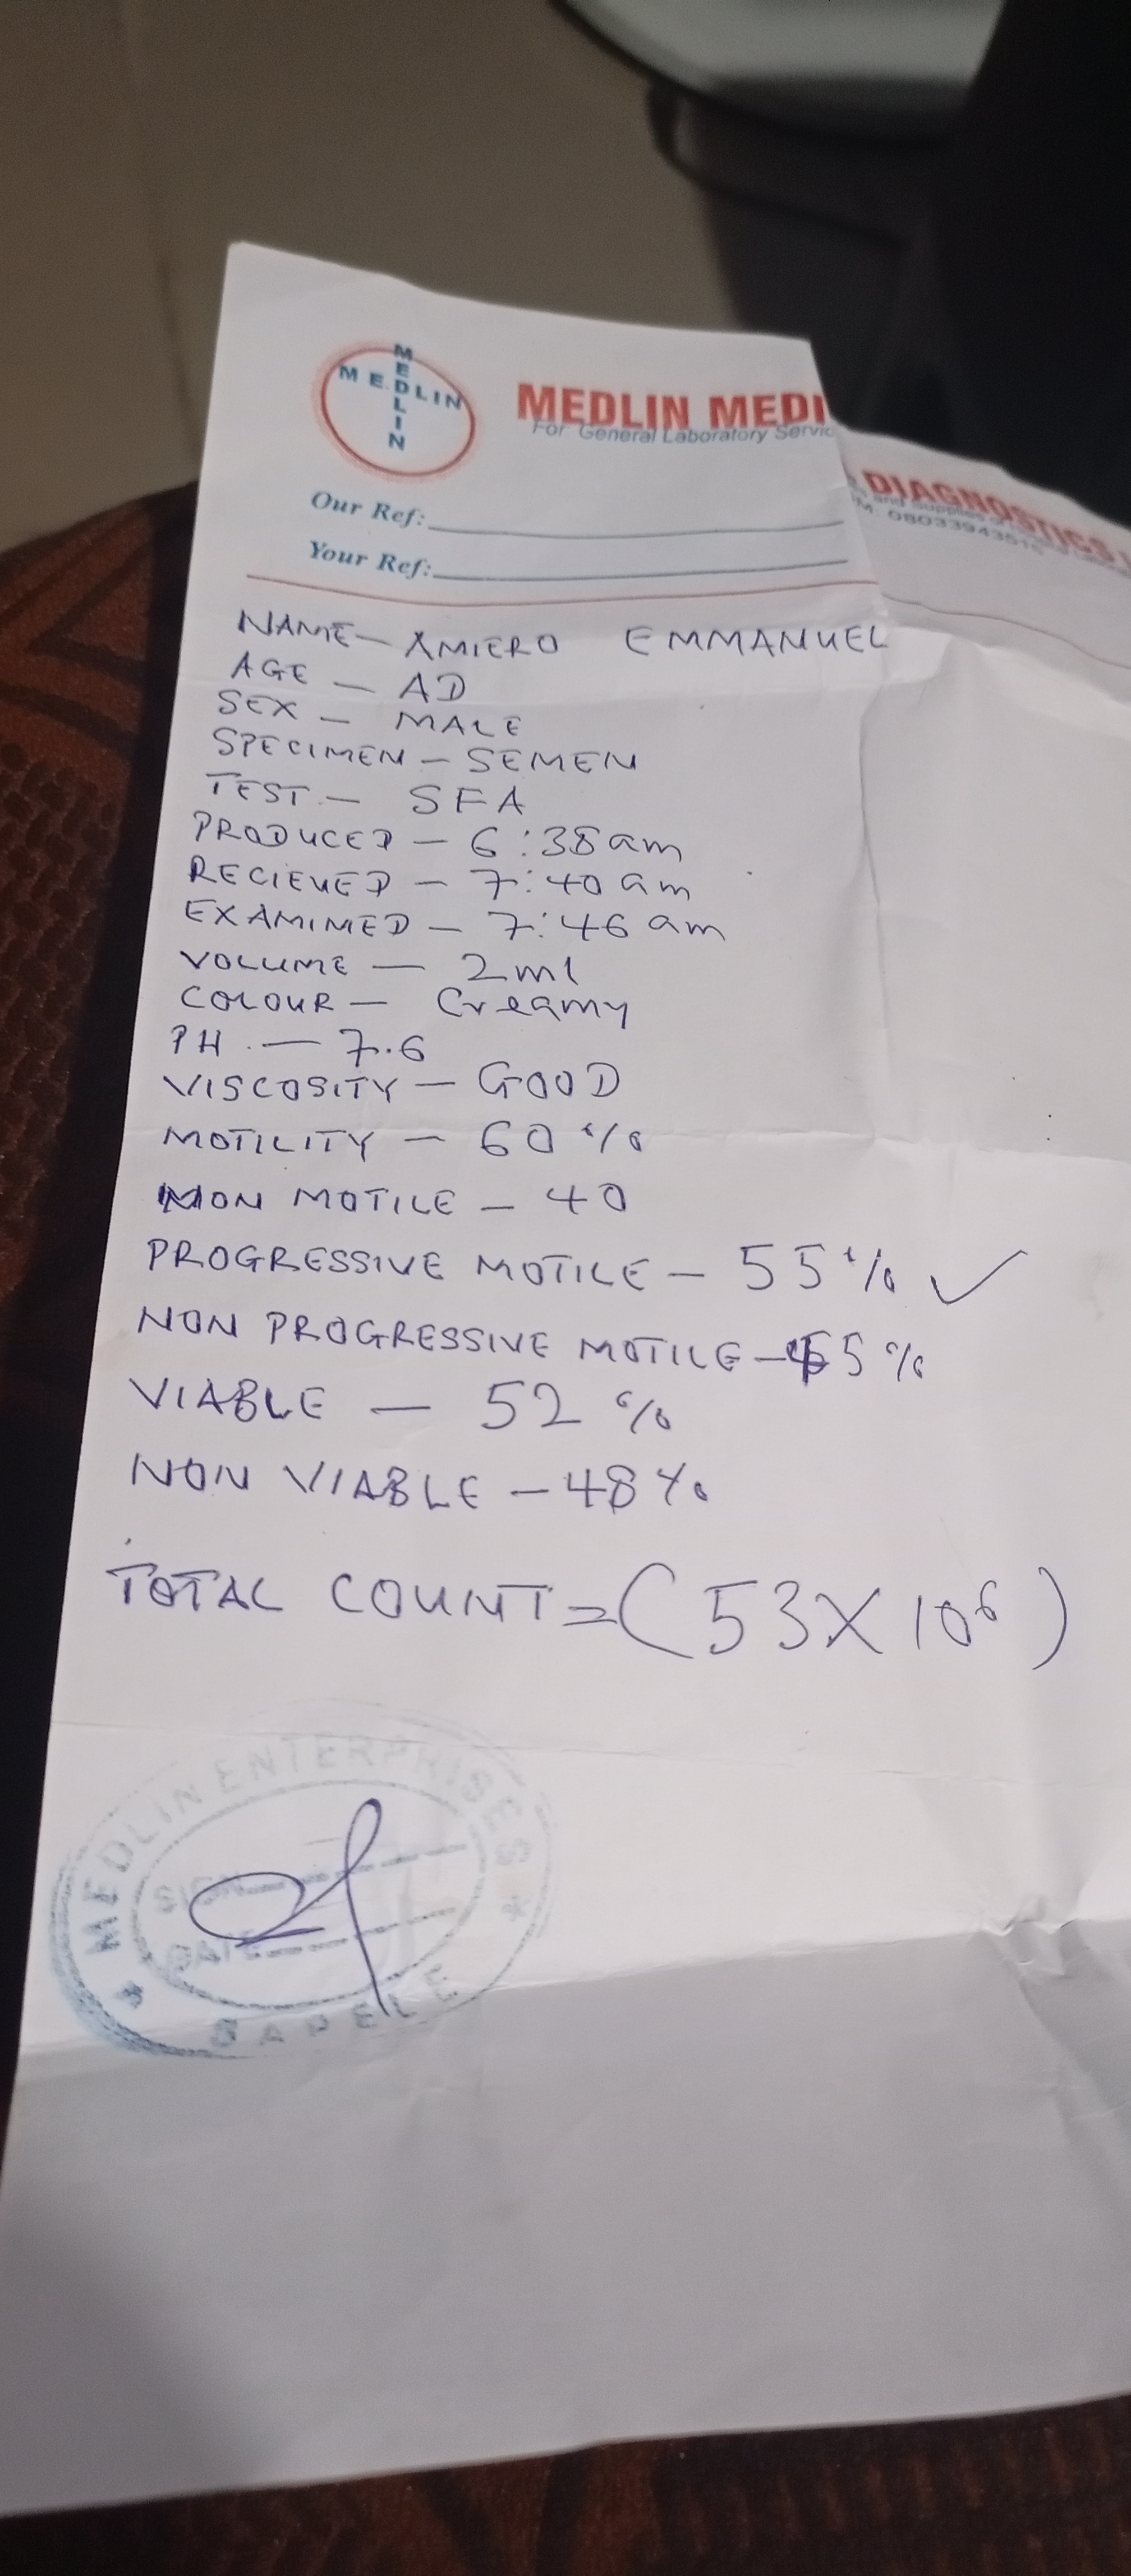 MEDLIN
MEDLIN
MEDLIN MEDI
DIAGNOSTICS
For General Laboratory Servic
and Supplies of
08033943515
Our Ref:
Your Ref:
NAME - AMIERO EMMANUEL
AGE - AD
SEX - MALE
SPECIMEN - SEMEN
TEST - SFA
PRODUCED - 6:38am
RECIEVED - 7:40am
EXAMINED - 7:46am
VOLUME - 2ml
COLOUR - Creamy
PH - 7.6
VISCOSITY - GOOD
MOTILITY - 60%
NON MOTILE - 40
PROGRESSIVE MOTILE - 55% ✓
NON PROGRESSIVE MOTILE - 5%
VIABLE - 52%
NON VIABLE - 48%
TOTAL COUNT = (53X10⁶)
* MEDLIN ENTERPRISES *
SIGN
DATE
SAPELE